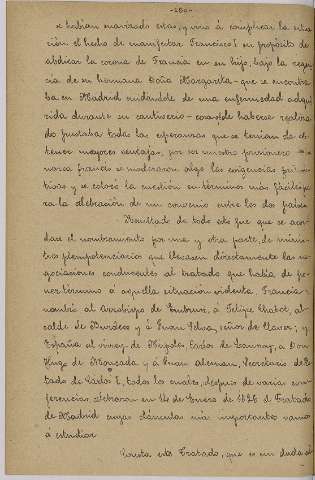 -180-
se habian suavizado estas, y vino á complicar la situa-
cion el hecho de manifestar Francisco I su propósito de
abdicar la corona de Francia en su hijo, bajo la regen-
cia de su hermana Doña Margarita - que se encontra-
ba en Madrid cuidándole de una enfermedad adqui-
rida durante su cautiverio - cosa que de haberse realiza-
do frustaba todas las esperanzas que se tenian de ob-
tener mayores ventajas, por ser nuestro prisionero mo-
narca francés se moderaron algo las exigencias primi-
tivas y se colocó la cuestión en términos más fáciles pa-
ra la celebración de un convenio entre los dos paises.
Resultado de todo esto fue que se acor-
dase el nombramiento por una y otra parte, de minis-
tros plenipotenciarios que llevasen directamente las ne-
gociaciones conducentes al tratado que había de po-
ner término á aquella situación violenta. Francia
nombró al Arzobispo de Embrun, á Felipe Chabot, al-
calde de Burdeos y á Juan Selva, señor de ; y
España al virrey de Nápoles, Carlos de Lannoy, a Don
Hugo de Moncada y á Juan Aleman, Secretario de Es-
tado de Carlos I, todos los cuales, después de varias con-
ferencias, firmaron en 14 de Enero de 1526 el Tratado
de Madrid cuyas cláusulas más importantes vamos
á estudiar.
Consta este Tratado, que es sin duda al